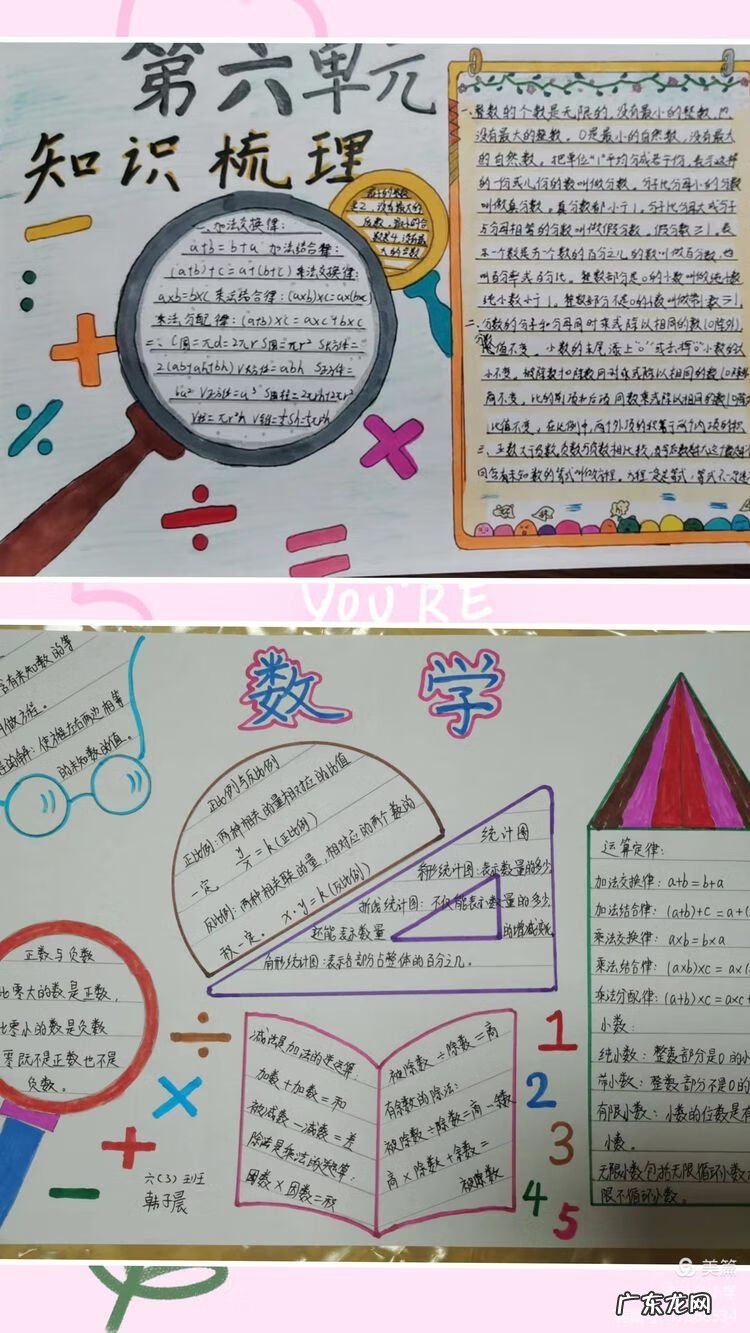 第六单元
知识梳理
一、加法交换律:
a+b=b+a 加法结合律:
(a+b)+c=a+(b+c) 乘法交换律:
a×b=b×c 乘法结合律:(a×b)×c=a×(b×c)
乘法分配律:(a+b)×c=a×c+b×c
二、C圆=πd=2πr S圆=πr² S长方体=
2(ab+ah+bh) V长方体=abh S正方体=
6a² V正方体=a³ S圆柱=2πrh+2πr²
V柱=πr²h V锥=⅓Sh=⅓πr²h
一、整数的个数是无限的,没有最小的整数,也
没有最大的整数。0是最小的自然数,没有最大
的自然数。把单位"1"平均分成若干份,表示这样
的一份或几份的数叫做分数。分子比分母小的分数
叫做真分数。真分数都小于1。分子比分母大或分子
与分母相等的分数叫做假分数。假分数≥1。表
示一个数是另一个数的百分之几的数叫做百分数,也
叫百分率或百分比。整数部分是0的小数叫做纯小数
纯小数小于1。整数部分不是0的小数叫做带小数≥1。
二、分数的分子和分母同时乘或除以相同的数(0除外)
分数值不变。小数的末尾添上"0"或去掉"0"小数的大
小不变。被除数和除数同时乘或除以相同的数(0除外
商不变。比的前项和后项同数乘或除以相同的数(0除外
比值不变。在比例中,两个外项的积等于两个内项的积
三、正数大于负数,负数与负数相比较,
四含有未知数的等式叫做方程。方程一定是等式,等式不一定
YOU'RE
数学
含有未知数的等
叫做方程。
的解:使方程左右两边相等
的未知数的值。
正比例与反比例
正比例:两种相关的量相对应的比值
一定 y/x=k(正比例)
反比例:两种相关联的量,相对应的两个数的
积一定。x·y=k(反比例)
统计图
条形统计图:表示数量的多少
折线统计图:不仅能表示数量的多少
还能表示数量的增减变化。
扇形统计图:表示各部分占整体的百分之几。
运算定律:
加法交换律:a+b=b+a
加法结合律:(a+b)+c=a+(
乘法交换律:a×b=b×a
乘法结合律:(a×b)×c=a×(
乘法分配律:(a+b)×c=a×c+
小数:
纯小数:整数部分是0的小
带小数:整数部分不是0的
有限小数:小数的位数是有
小数。
无限小数包括无限循环小数
限不循环小数。
正数与负数
比零大的数是正数,
比零小的数是负数
零既不是正数也不是
负数。
减法是加法的逆运算:
加数+加数=和
被减数-减数=差
除法是乘法的逆运算:
因数×因数=积
被除数÷除数=商
有余数的除法:
被除数÷除数=商…余数
商×除数+余数=
被除数
1
2
3
4
5
六(3)班
韩子晨
美篇
广东龙网